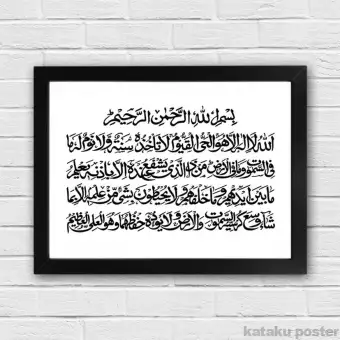 بِسْمِ اللهِ الرَّحْمٰنِ الرَّحِيْمِ
اَللهُ لَا اِلٰهَ اِلَّا هُوَ الْحَيُّ الْقَيُّوْمُ لَا تَأْخُذُهُ سِنَةٌ وَلَا نَوْمٌ لَهُ مَا
فِى السَّمٰوٰتِ وَمَا فِى الْاَرْضِ مَنْ ذَا الَّذِيْ يَشْفَعُ عِنْدَهُ اِلَّا بِاِذْنِهِ يَعْلَمُ
مَا بَيْنَ اَيْدِيْهِمْ وَمَا خَلْفَهُمْ وَلَا يُحِيْطُوْنَ بِشَيْءٍ مِّنْ عِلْمِهِ اِلَّا بِمَا
شَاءَ وَسِعَ كُرْسِيُّهُ السَّمٰوٰتِ وَالْاَرْضَ وَلَا يَؤُدُهُ حِفْظُهُمَا وَهُوَ الْعَلِيُّ الْعَظِيْمُ
kataku poster